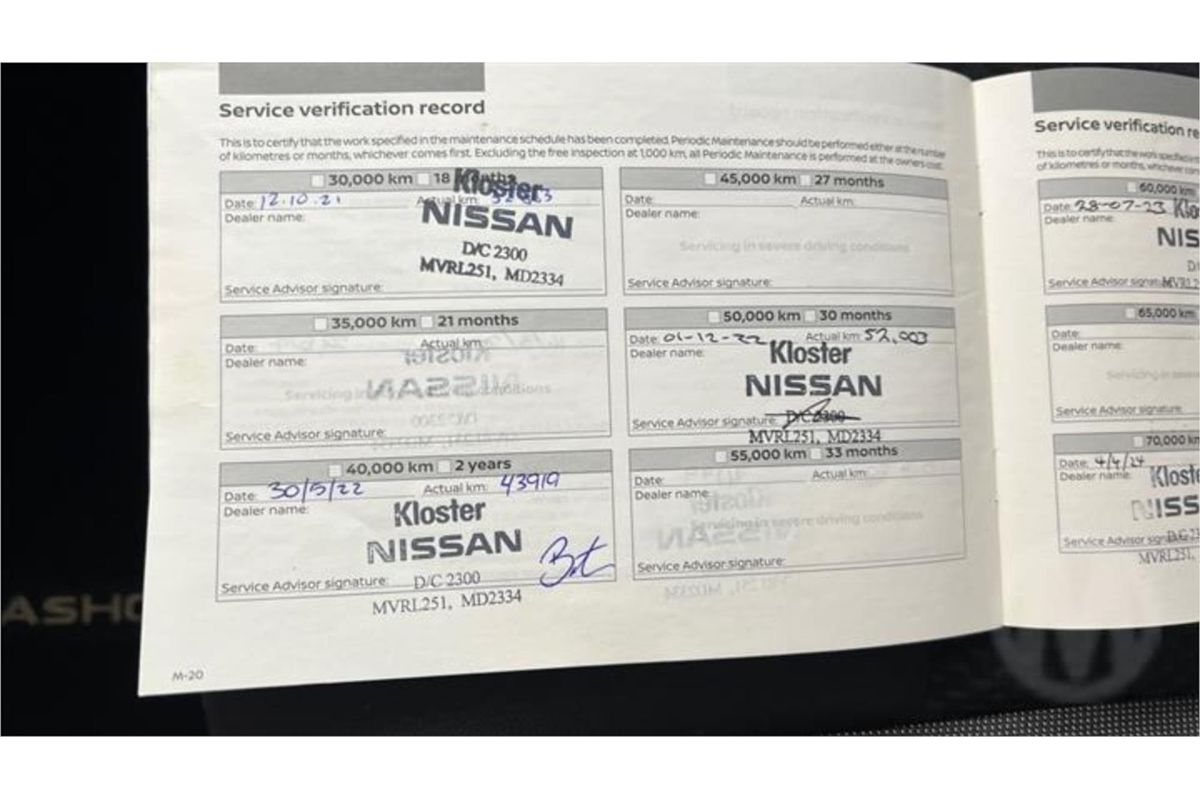 Service verification record
This is to certify that the work specified in the maintenance schedule has been completed. Periodic Maintenance should be performed either at the number
of kilometres or months, whichever comes first. Excluding the free inspection at 1,000 km, all Periodic Maintenance is performed at the owners cost.
30,000 km 18 months
Date: 12.10.21 Actual km:
Dealer name:
Kloster
NISSAN
D/C 2300
MVRL251, MD2334
Service Advisor signature:
35,000 km 21 months
Date: Actual km:
Dealer name:
Servicing in conditions
Service Advisor signature:
40,000 km 2 years
Date: 30/5/22 Actual km: 43919
Dealer name:
Kloster
NISSAN
Service Advisor signature: D/C 2300
MVRL251, MD2334
M-20
45,000 km 27 months
Date: Actual km:
Dealer name:
Servicing in severe driving conditions
Service Advisor signature:
50,000 km 30 months
Date: 01-12-22 Actual km: 52,003
Dealer name:
Kloster
NISSAN
Service Advisor signature: D/C 2300
MVRL251, MD2334
55,000 km 33 months
Date: Actual km:
Dealer name:
Servicing in severe driving conditions
Service Advisor signature:
Service verification re
This is to certify that the work specified
of kilometres or months, whichever com
60,000 km
Date: 28-07-23
Dealer name:
Klos
NIS
Service Advisor signature:
65,000 km
Date:
Dealer name:
Servicing in severe
Service Advisor signature:
70,000 km
Date: 4/4/24
Dealer name:
Klost
NISS
Service Advisor
MVRL251,
ASHQ